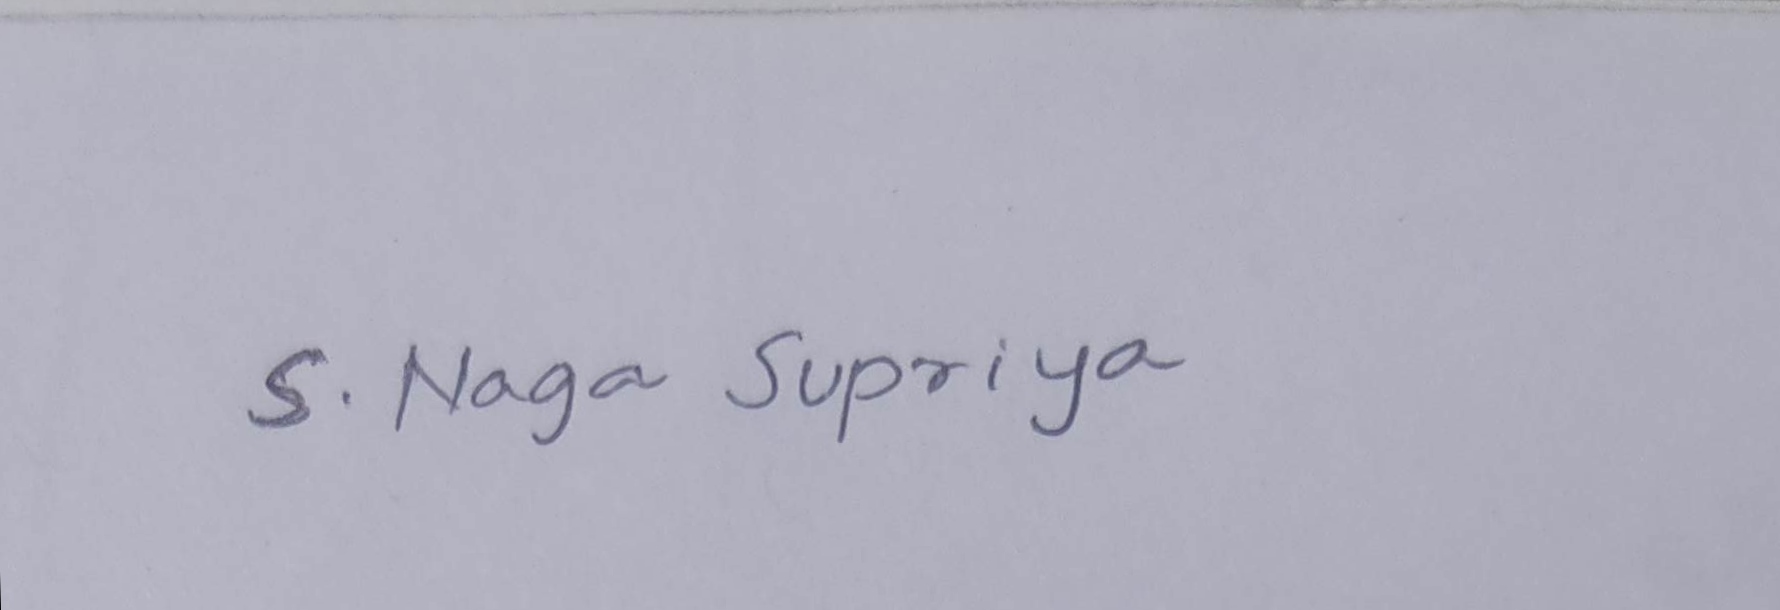 S. Naga Supriya